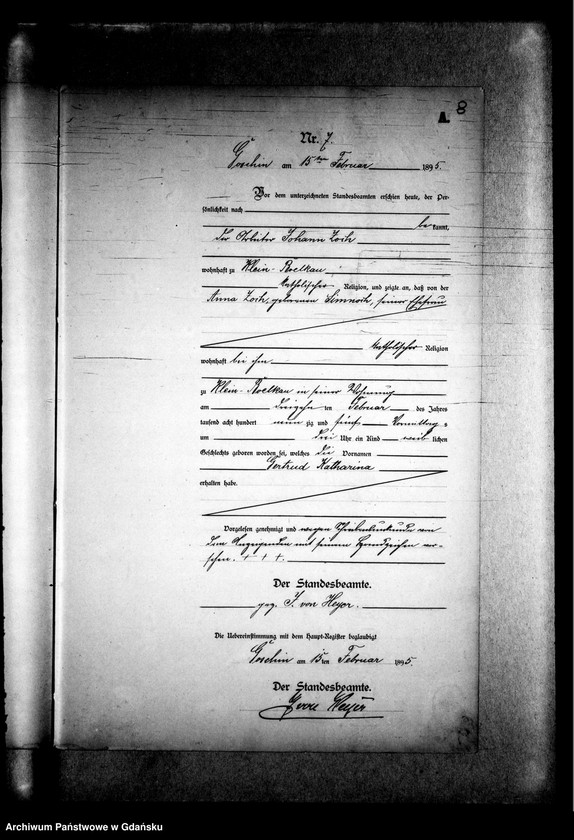 8
Nr. 7.
Goschin am 15ten Februar 1895.
Vor dem unterzeichneten Standesbeamten erschien heute, der Per-
sönlichkeit nach
be kannt,
der Arbeiter Johann Zoch
wohnhaft zu Klein-Roelkau
katholischer Religion, und zeigte an, daß von der
Anna Zoch, geborenen Simnoch, seiner Ehefrau
katholischer Religion
wohnhaft bei ihm
zu Klein-Roelkau in seiner Wohnung
am dreizehn ten Februar des Jahres
tausend acht hundert neun zig und fünf Vormittags
um drei Uhr ein Kind weib lichen
Geschlechts geboren worden sei, welches die Vornamen
Gertrud Katharina
erhalten habe.
Vorgelesen genehmigt und wegen Schreibensunkunde von
dem Anzeigenden mit seinem Handzeichen ver-
sehen. + + +.
Der Standesbeamte.
gez. von Heyer.
Die Uebereinstimmung mit dem Haupt-Register beglaubigt
Goschin am 15ten Februar 1895.
Der Standesbeamte.
Heyer
Archiwum Państwowe w Gdańsku